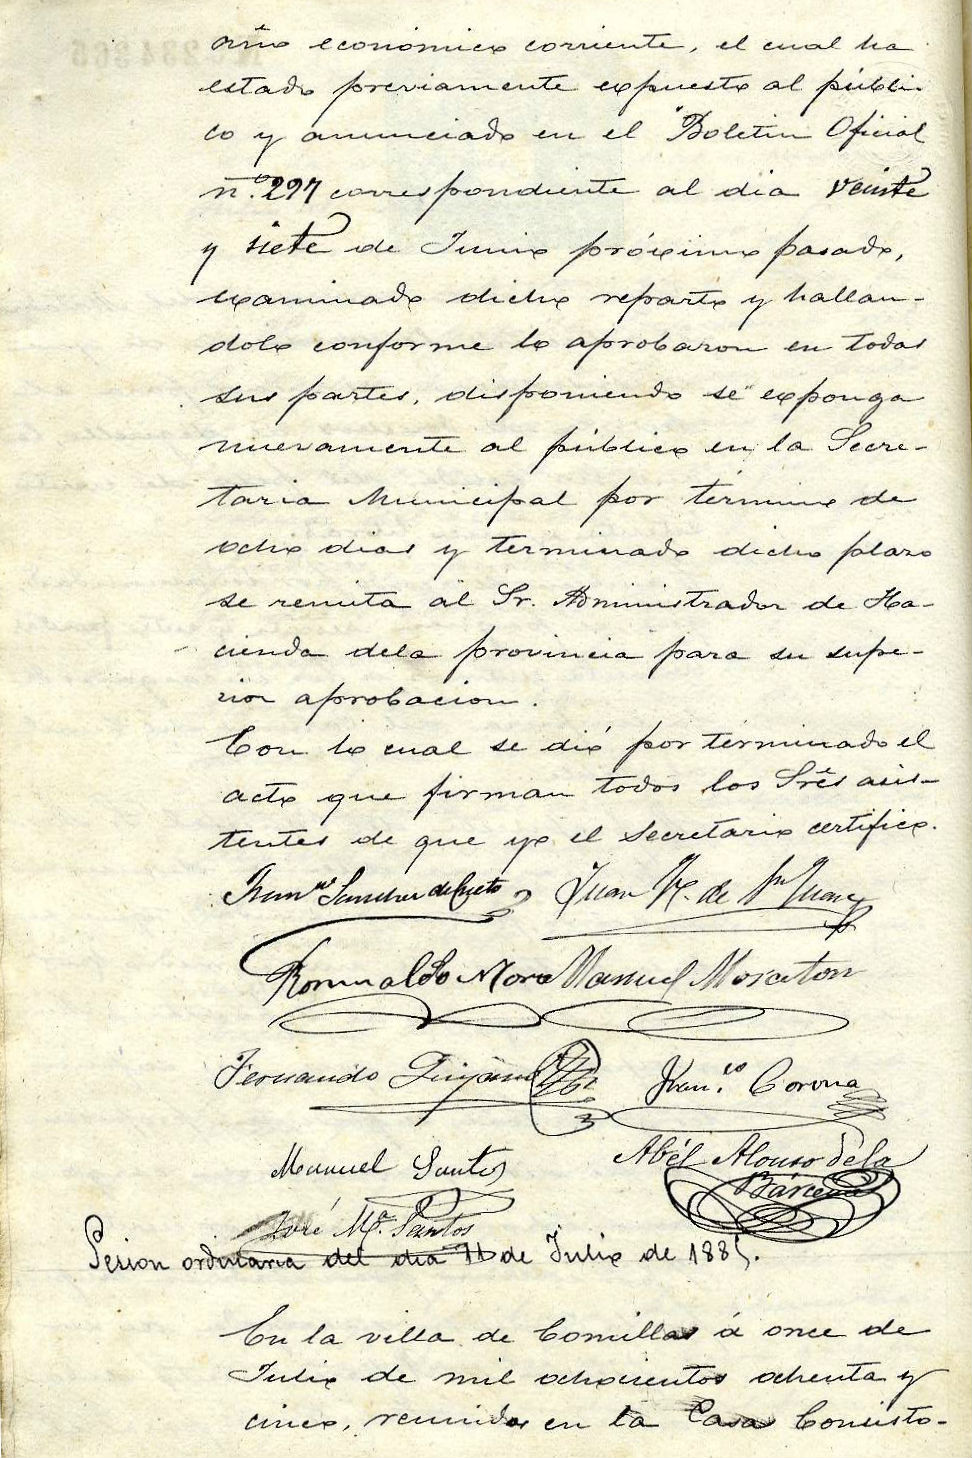 año económico corriente, el cual ha
estado previamente expuesto al públi-
co y anunciado en el "Boletin Oficial
n.º 297 correspondiente al dia veinte
y siete de Junio próximo pasado,
examinado dicho reparto y hallan-
dolo conforme lo aprobaron en todas
sus partes, disponiendo se exponga
nuevamente al público en la Secre-
taria Municipal por término de
ocho dias y terminado dicho plazo
se remita al Sr. Administrador de Ha-
cienda dela provincia para su supe-
rior aprobacion.
Con lo cual se dió por terminado el
acto que firman todos los Sres asis-
tentes de que yo el Secretario certifico.
Franco Sanchez de Cueto Juan V. de Sn Juan
Romualdo Mora Manuel Moraton
Fernando Quijano Franco Corona
Manuel Santos Abél Alonso de la
Bárcena
José Ma. Santos
Sesion ordinaria del dia 11 de Julio de 1885.
En la villa de Comillas á once de
Julio de mil ochocientos ochenta y
cinco, reunidos en la Casa Consisto-